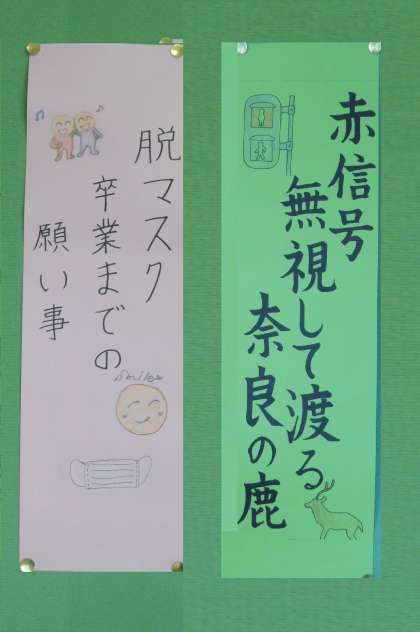 赤信号
無視して渡る
奈良の鹿
脱マスク
卒業までの
願い事
Smile